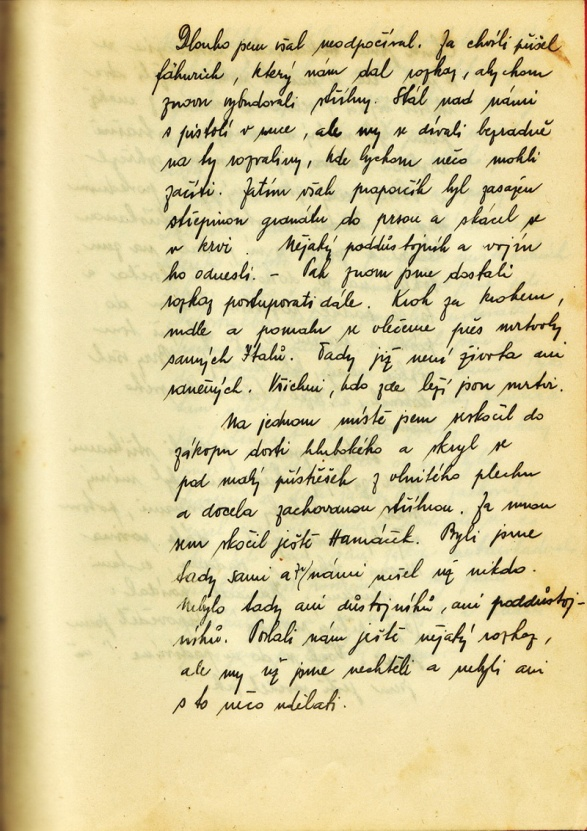 Dlouho jsem však neodpočíval. Za chvíli přišel
fähnrich, který nám dal rozkaz, abychom
znovu vybudovali střílny. Stál nad námi
s pistolí v ruce, ale my se dívali bezradně
na ty rozvaliny, kde bychom něco mohli
začíti. Zatím však praporčík byl zasažen
střepinou granátu do prsou a skácel se
v krvi. Nějaký poddůstojník a vojín
ho odnesli. – Pak znovu jsme dostali
rozkaz postupovati dále. Krok za krokem,
mdle a pomalu se vlečeme přes mrtvoly
samých Italů. Tady již není života ani
raněných. Všichni, kdo zde leží jsou mrtvi.
Na jednom místě jsem seskočil do
zákopu dosti hlubokého a skryl se
pod malý přístřešek z vlnitého plechu
a docela zachovanou střílnou. Za mnou
sem skočil ještě Hamáček. Byli jsme
tady sami a za námi nešel už nikdo.
Nebylo tady ani důstojníků, ani poddůstoj-
níků. Poslali nám ještě nějaký rozkaz,
ale my už jsme nechtěli a nebyli ani
s to něco udělati.